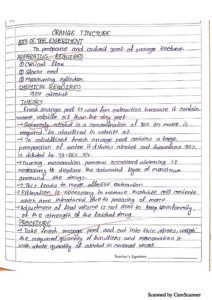 ORANGE TINCTURE
AIM OF THE EXPERIMENT
To prepare and submit of orange tincture.
APPARATUS REQUIRED
① Conical flax
② Glass rod
③ Measuring cylinder
CHEMICAL REQUIRED
90% alcohol
THEORY
Fresh orange peel is used for extraction because it contain
more volatile oil than the dry peel.
→ Generally alcohol in a concentration of 70% or more is
required to in volatile oil.
→ fresh orange peel contains a large
proportion of water it dilutes alcohol and therefore 90%
is diluted to
→ During maceration process occasional is
necessary to displace the saturated layer of menstruum
around the drugs.
→ This leads to more effective extraction.
→ Filtration is necessary to remove insoluble cell contents
which are introduced due to pressing of marc.
→ Adjustment of final volume is not done to keep uniformity
of the strength of the finished drug.
PROCEDURE
→ Take fresh orange peel and cut into thin slices, weigh
the required quantity of and macerate it
with whole quantity of alcohol in covered vessel.
Teacher's Signature
Scanned by CamScanner